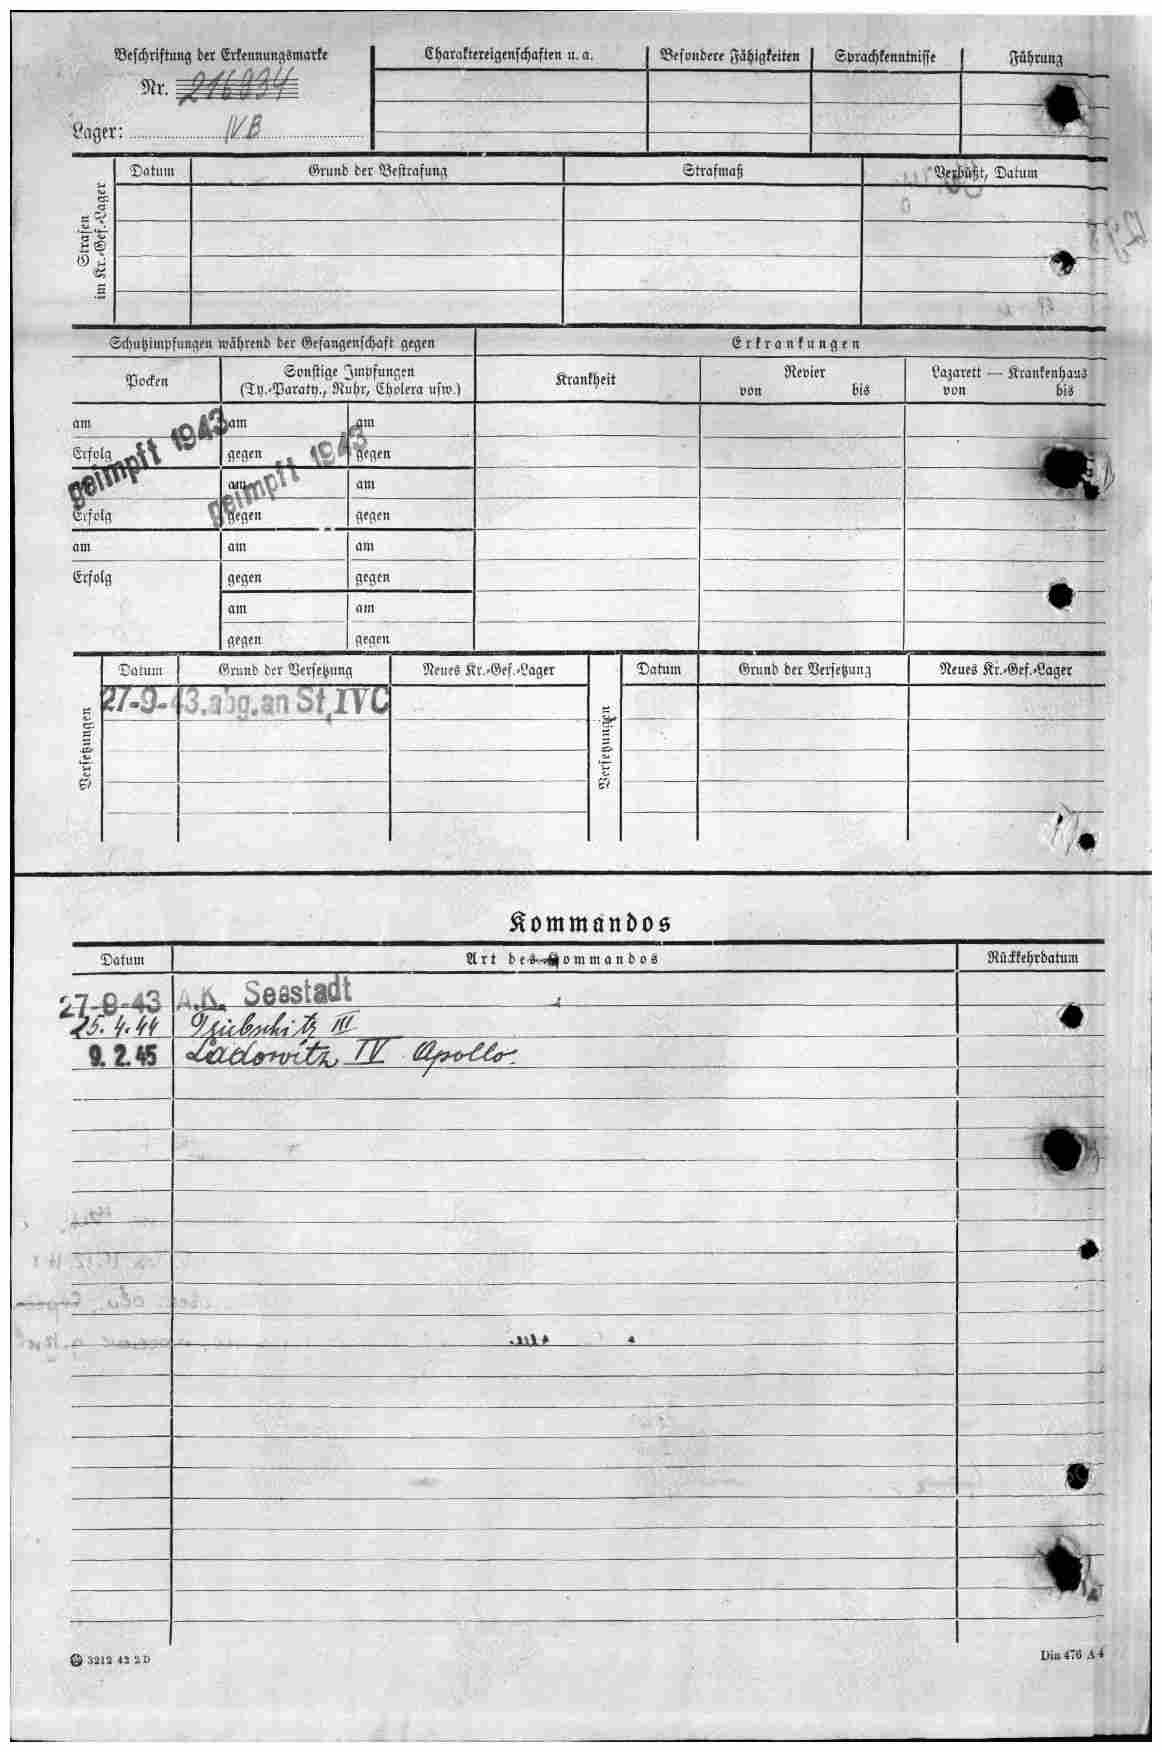 Beschriftung der Erkennungsmarke
Nr. 216834
Lager: IV B
Charaktereigenschaften u. a.
Besondere Fähigkeiten
Sprachkenntnisse
Führung
Strafen im Kr.-Gef.-Lager
Datum
Grund der Bestrafung
Strafmaß
Verbüßt, Datum
Schutzimpfungen während der Gefangenschaft gegen
Erkrankungen
Pocken
Sonstige Impfungen
(Ty.-Paraty., Ruhr, Cholera usw.)
Krankheit
Revier
von bis
Lazarett — Krankenhaus
von bis
am am am
Erfolg gegen gegen
geimpft 1943
geimpft 1943
am am
Erfolg gegen gegen
am am am
Erfolg gegen gegen
am am
gegen gegen
Versetzungen
Datum Grund der Versetzung Neues Kr.-Gef.-Lager
27-9-43. abg. an St. IV C
Versetzungen
Datum Grund der Versetzung Neues Kr.-Gef.-Lager
Kommandos
Datum Art des Kommandos Rückkehrdatum
27-9-43 A.K. Seestadt
25. 4. 44 Triebschitz III
9. 2. 45 Ladowitz IV Apollo.
3212 42 2 D
Din 476 A 4